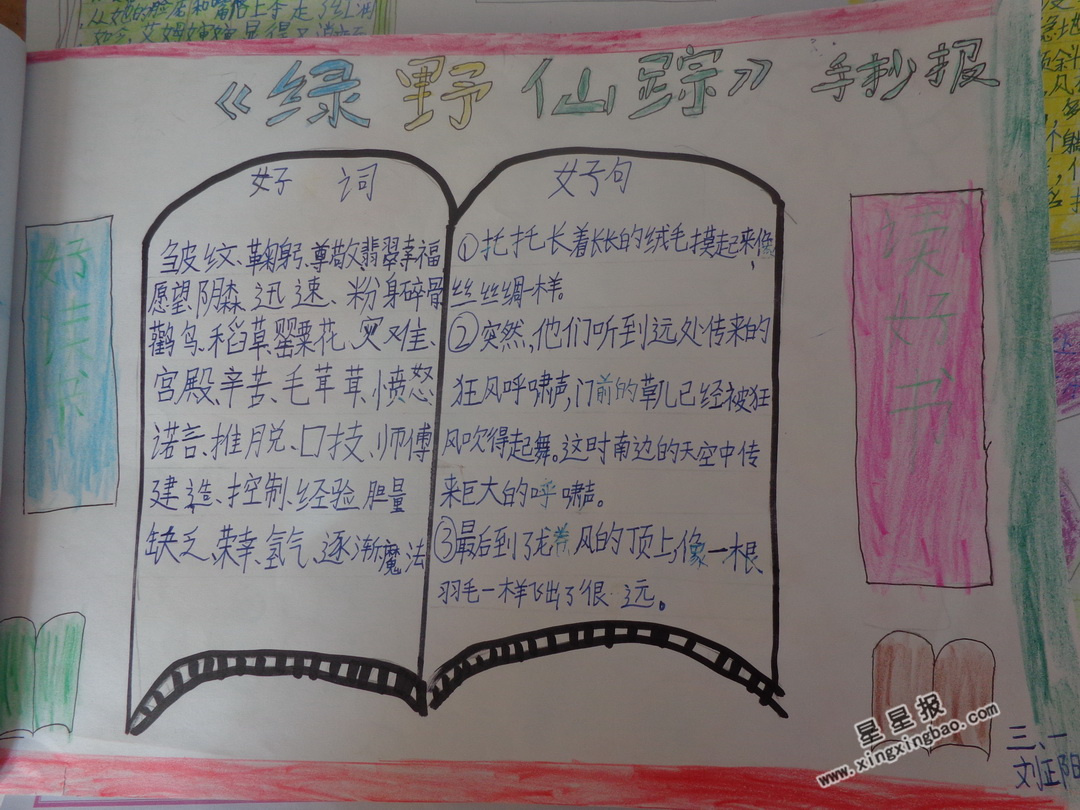 《绿野仙踪》手抄报
好词
皱纹、鞠躬、尊敬、翡翠幸福
愿望阴森、迅速、粉身碎骨
鹳鸟、稻草、罂粟花、灾难、
宫殿、辛苦、毛茸茸、愤怒
诺言、推脱、口技、师傅
建造、控制、经验胆量
缺乏、荣幸、氢气、逐渐魔法
好句
①托托长着长长的绒毛摸起来,像
丝丝绸一样。
②突然,他们听到远处传来的
狂风呼啸声,门前的草儿已经被狂
风吹得起舞。这时南边的天空中传
来巨大的呼啸声。
③最后到了龙卷风的顶上,像一根
羽毛一样飞出了很远。
好读书
读好书
三、一
刘正阳
星星报
www.xingxingbao.com